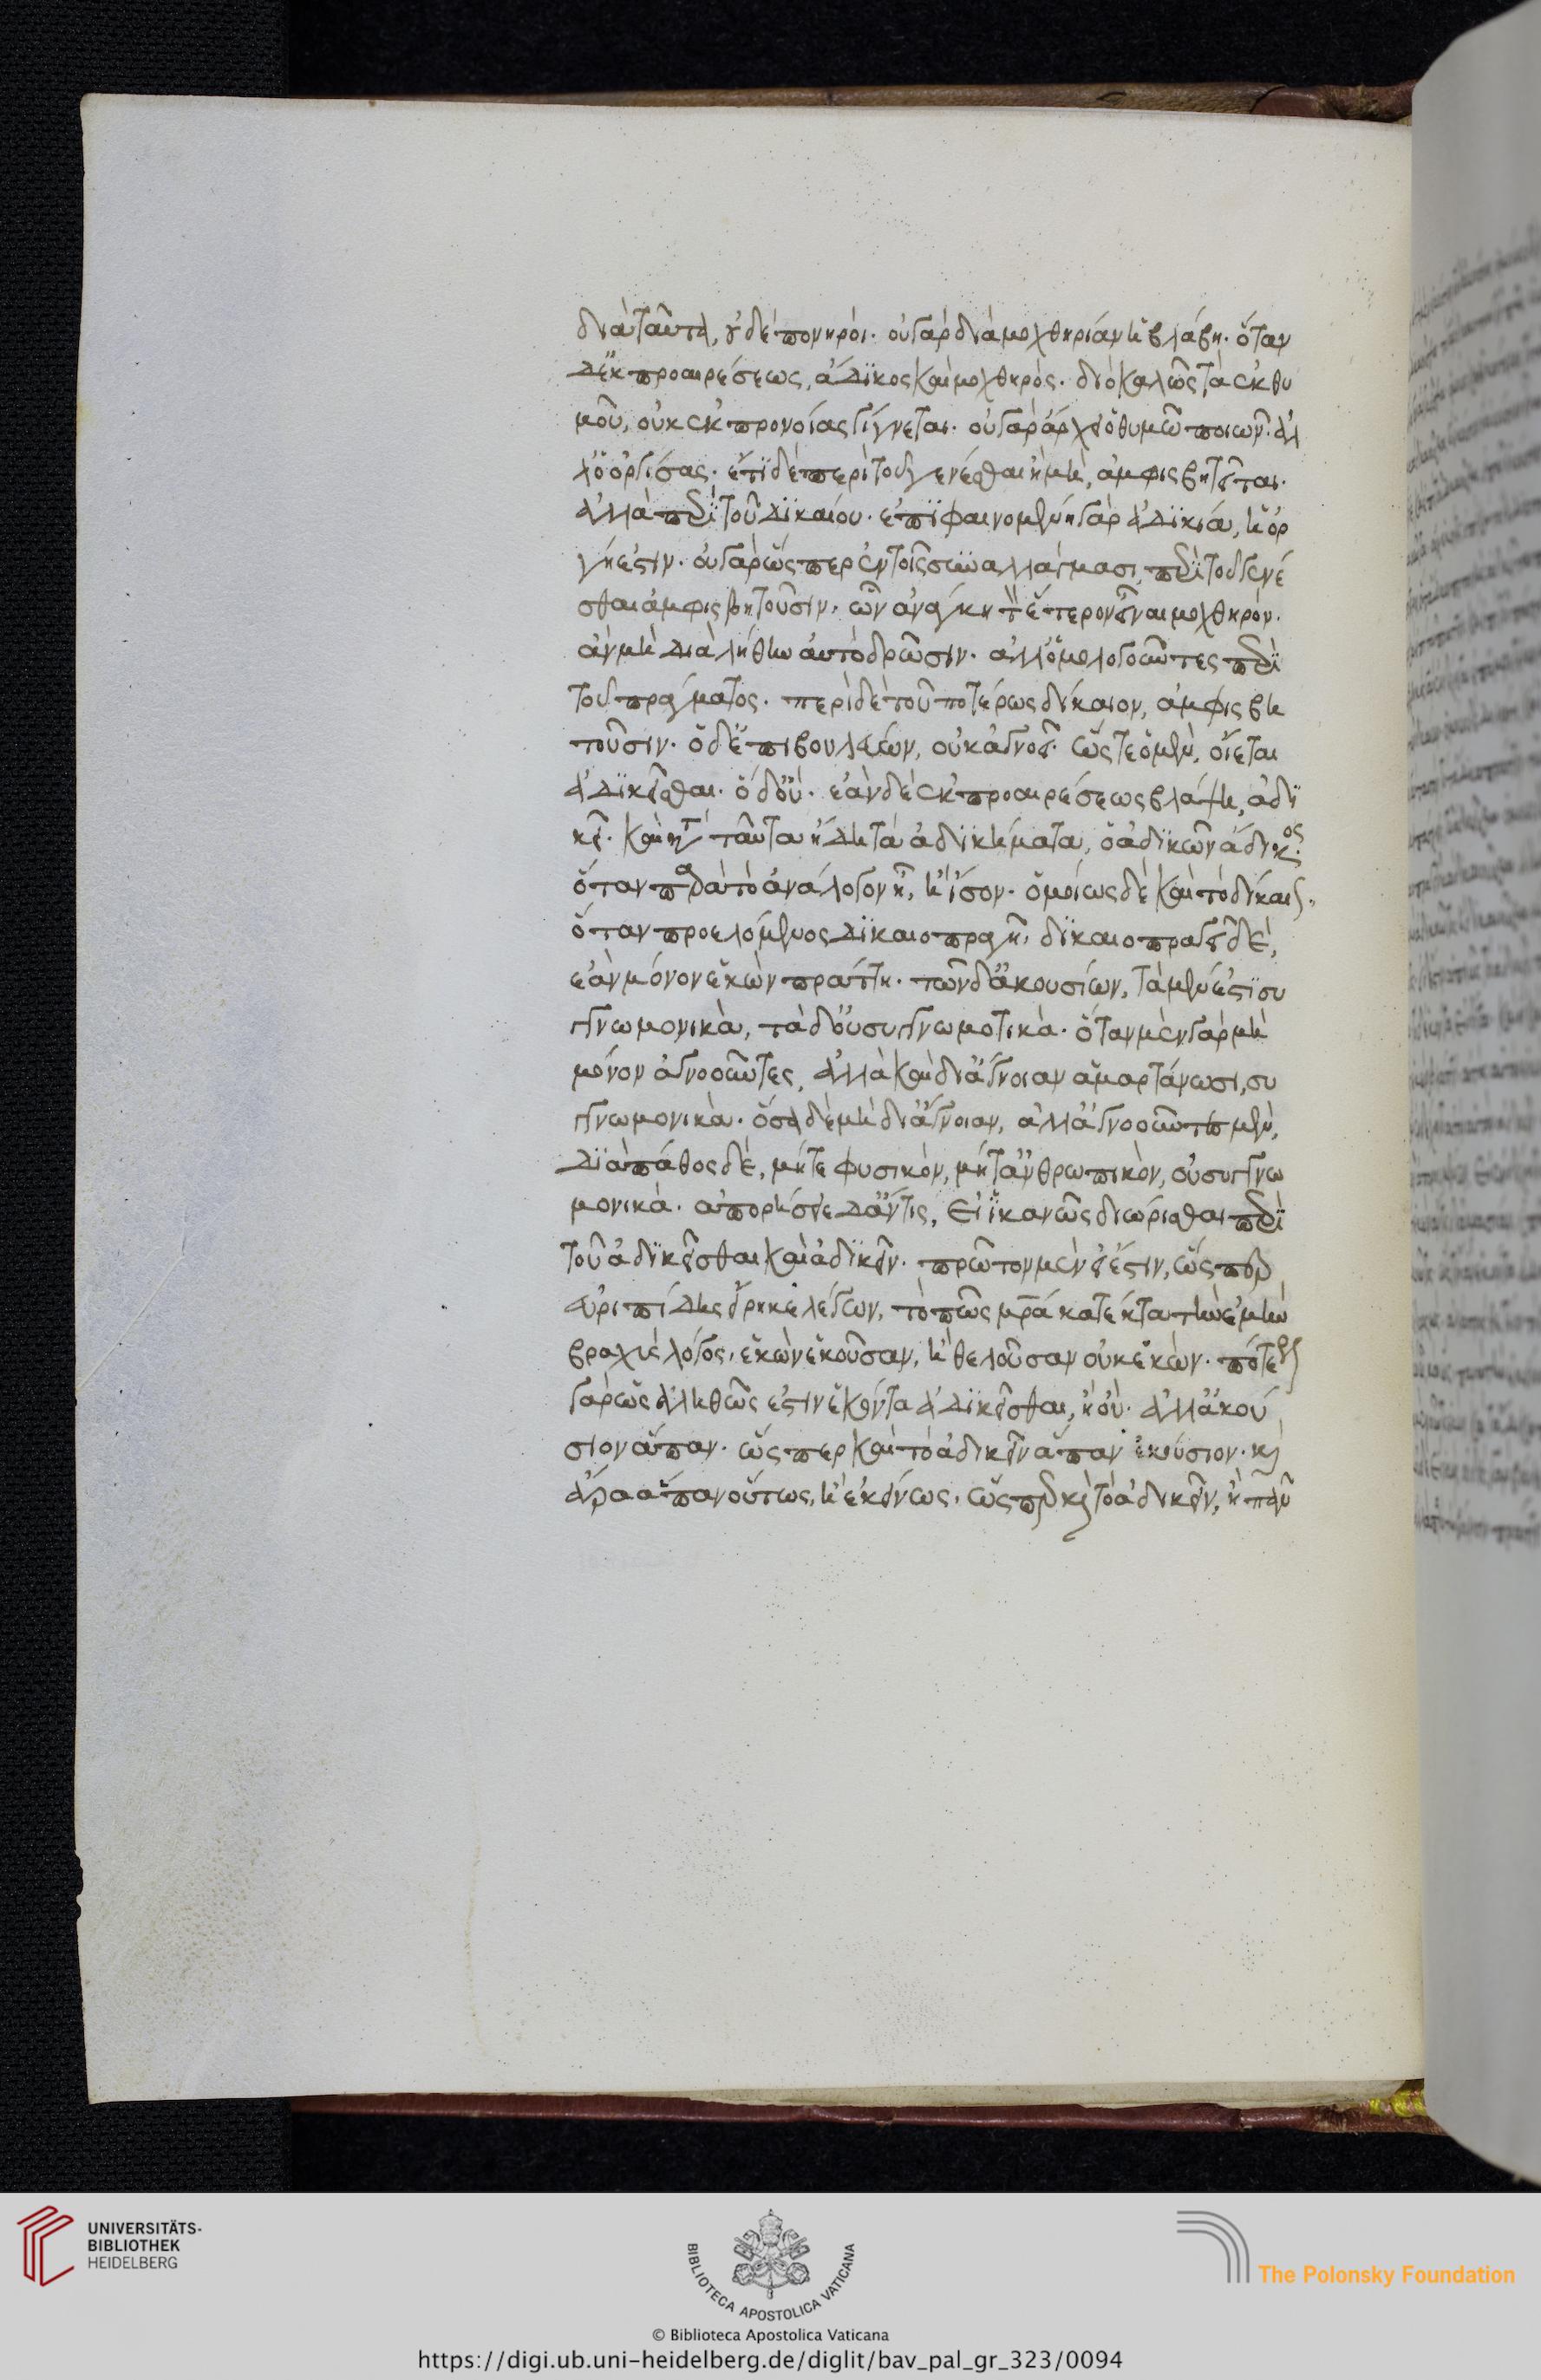 διὰ ταῦτα, οὐδὲ πονηροί· οὐ γὰρ διὰ μοχθηρίαν ἡ βλάβη· ὅταν
δ' ἐκ προαιρέσεως, ἄδικος καὶ μοχθηρός· διὸ καλῶς τὰ ἐκ θυ
μοῦ, οὐκ ἐκ προνοίας γίγνεται· οὐ γὰρ ἄρχει ὁ θυμῶ ποιων· ἀλ
λ' ὁ ὀργίσας· ἔτι δὲ περὶ τοῦ γενέσθαι ἢ μὴ, ἀμφισβητεῖται·
ἀλλὰ περὶ τοῦ δικαίου· ἐπὶ φαινομένη γὰρ ἀδικία, ἡ ὀρ
γή ἐστιν· οὐ γὰρ ὥσπερ ἐν τοῖς συναλλάγμασι περὶ τοῦ γενέ
σθαι ἀμφισβητοῦσιν, ὧν ἀνάγκη τὸν ἕτερον εἶναι μοχθηρόν·
ἂν μὴ διὰ λήθην αὐτὸ δρῶσιν· ἀλλ' ὁμολογοῦντες περὶ
τοῦ πράγματος· περὶ δὲ τοῦ ποτέρως δίκαιον, ἀμφισβη
τοῦσιν· ὁ δ' ἐπιβουλεύων, οὐκ ἀγνοεῖ· ὥστε ὁ μὲν, οἴεται
ἀδικεῖσθαι· ὁ δ' οὔ· ἐὰν δὲ ἐκ προαιρέσεως βλάψη, ἀδι
κεῖ· καὶ κατὰ ταῦτα ἤδη τὰ ἀδικήματα, ὁ ἀδικῶν ἄδικος·
ὅταν παρὰ τὸ ἀνάλογον ἦ, ἢ ἴσον· ὁμοίως δὲ καὶ τὸ δίκαιον·
ὅταν προελόμενος δικαιοπραγῆ· δικαιοπραγεῖ δὲ,
ἐὰν μόνον ἑκὼν πράττη· τῶν δ' ἀκουσίων, τὰ μὲν ἐστὶ συ
γγνωμονικὰ, τὰ δ' οὐ συγγνωμοτικὰ· ὅταν μὲν γὰρ μὴ
μόνον ἀγνοοῦντες, ἀλλὰ καὶ δι' ἄγνοιαν ἁμαρτάνωσι, συ
γγνωμονικὰ· ὅσα δὲ μὴ δι' ἄγνοιαν, ἀλλ' ἀγνοοῦντες μὲν,
διὰ πάθος δὲ, μήτε φυσικὸν, μήτ' ἀνθρωπικὸν, οὐ συγγνω
μονικὰ· ἀπορήσειε δ' ἄν τις, εἰ ἱκανῶς διωρίσθαι περὶ
τοῦ ἀδικεῖσθαι καὶ ἀδικεῖν· πρῶτον μὲν εἰ ἔστιν, ὥσπερ
εὐριπίδης εἴρηκε λέγων, τὸ πῶς μητέρα κατέκτα τὴν ἐμὴν
βραχὺς λόγος, ἑκὼν ἑκοῦσαν, ἢ θελοῦσαν οὐκ ἑκών· πότερον
γὰρ ὡς ἀληθῶς ἐστὶν ἑκόντα ἀδικεῖσθαι, ἢ οὐ· ἀλλ' ἀκού
σιον ἅπαν· ὥσπερ καὶ τὸ ἀδικεῖν ἅπαν ἑκούσιον· καὶ
ἄρα ἅπαν οὕτως, ἢ ἐκείνως· ὥσπερ καὶ τὸ ἀδικεῖν, ἢ πᾶν
UNIVERSITÄTS-
BIBLIOTHEK
HEIDELBERG
BIBLIOTECA APOSTOLICA VATICANA
The Polonsky Foundation
© Biblioteca Apostolica Vaticana
https://digi.ub.uni-heidelberg.de/diglit/bav_pal_gr_323/0094